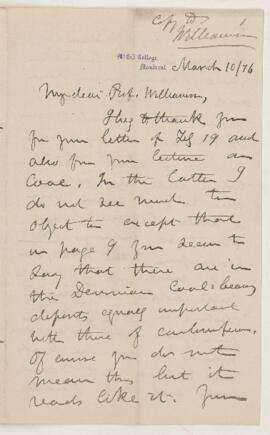 Copy to
Williamson
McGill College,
Montreal.
March 10/76
My dear Prof. Williamson,
I beg to thank you
for your letter of Feb 19 and
also for your lecture on
Coal. In the latter I
do not see much to
object to except that
in page 9 you seem to
say that there are in
the Devonian Coal bearing
deposits equally important
with those of carboniferous.
Of course you do not
mean this but it
reads like it. Your